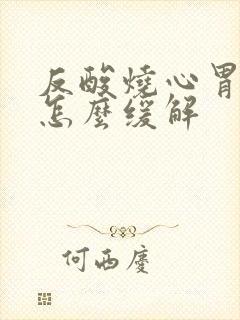 反酸燒心胃
怎麼缓解
何西慶